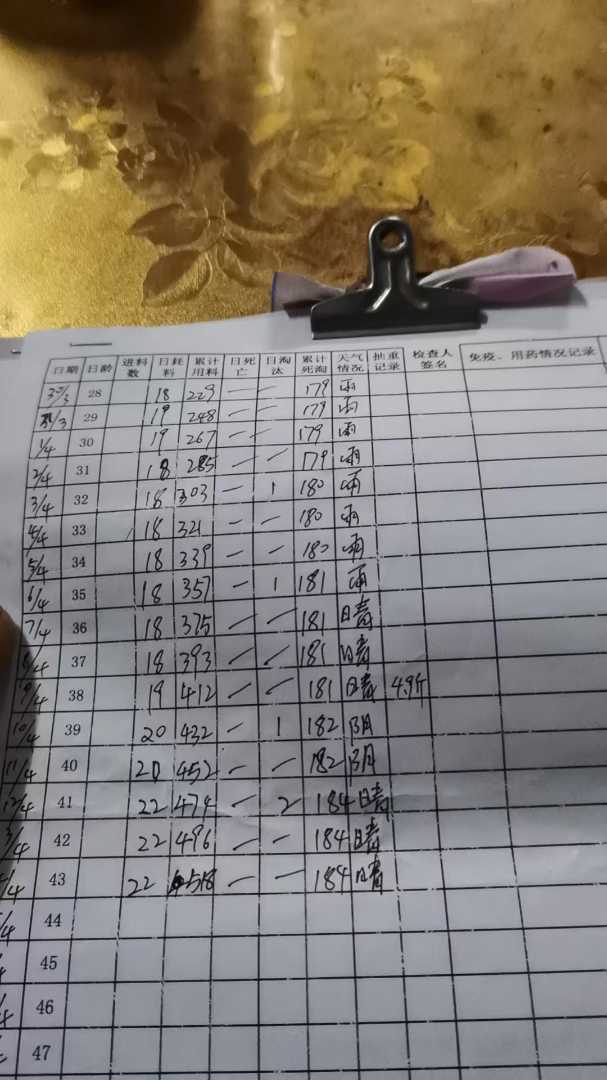 日期 日龄 进料数 日耗料 累计用料 日死亡 日淘汰 累计死淘 天气情况 抽重记录 检查人签名 免疫、用药情况记录
30/3 28 18 229 — — 179 雨
31/3 29 19 248 — — 179 雨
1/4 30 19 267 — — 179 雨
2/4 31 18 285 — — 179 雨
3/4 32 18 303 — 1 180 雨
4/4 33 18 321 — — 180 雨
5/4 34 18 339 — — 180 雨
6/4 35 18 357 — 1 181 雨
7/4 36 18 375 — — 181 晴
8/4 37 18 393 — — 181 晴
9/4 38 19 412 — — 181 晴 4.9斤
10/4 39 20 432 — 1 182 阴
11/4 40 20 452 — — 182 阴
12/4 41 22 474 — 2 184 晴
3/4 42 22 496 — — 184 晴
/4 43 22 518 — — 184 晴
/4 44
45
/4 46
47